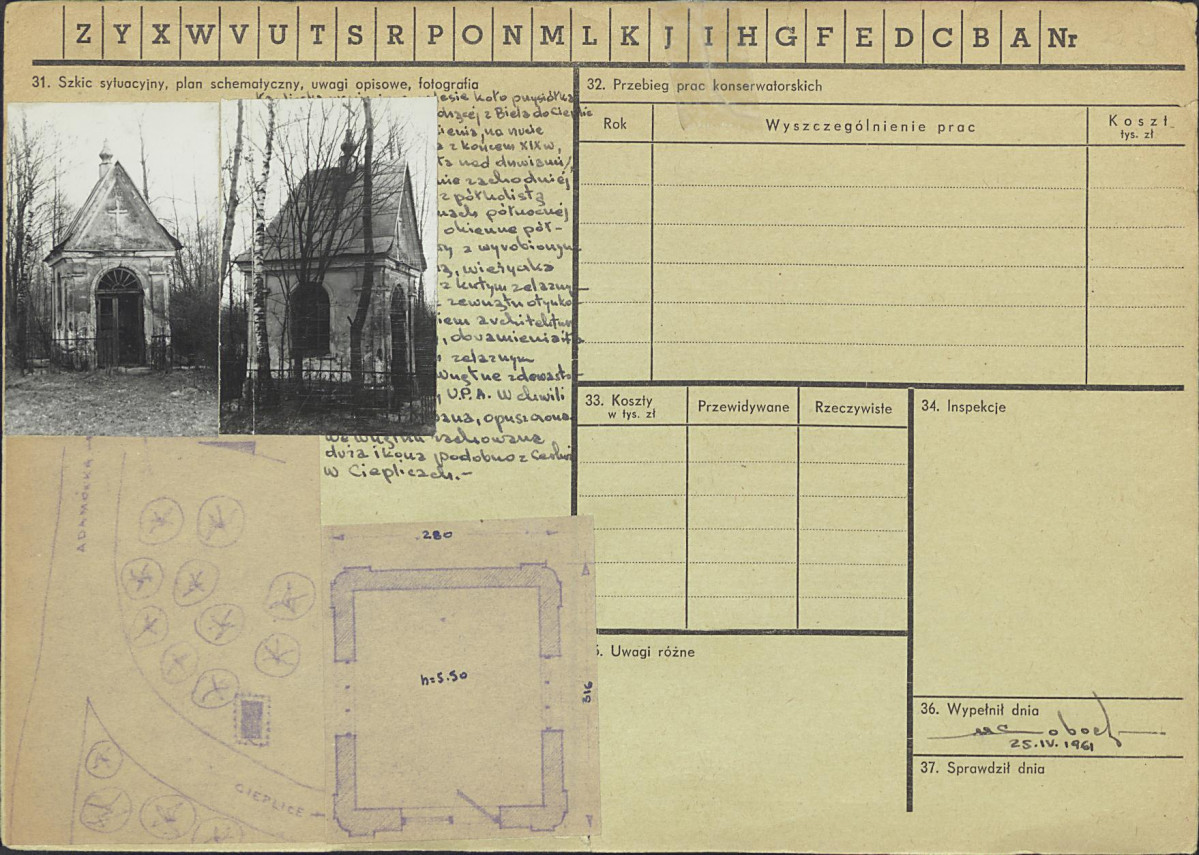 Z Y X W V U T S R P O N M L K J I H G F E D C B A Nr
31. Szkic sytuacyjny, plan schematyczny, uwagi opisowe, fotografia
lesie koło przysiółka
z Biela do Cieplic
na rzucie
z końcem XIX w,
nad drzwiami,
zachodniej
z półkolistą
północnej
okienne pół-
z wyrobionym
wieżyczka
z kutym żelaznym
zewnątrz otynko-
architektur
obramieniami
żelaznym
Wnętrze zdewasto-
U.P.A. W chwili
opuszczona.
We wnętrzu zachowana
duża ikona podobno z Cerkwi
w Cieplicach.-
ADAMÓWKA
CIEPLICE
280
h=5.50
316
32. Przebieg prac konserwatorskich
Rok
Wyszczególnienie prac
Koszt
tys. zł
33. Koszty
w tys. zł
Przewidywane
Rzeczywiste
34. Inspekcje
5. Uwagi różne
36. Wypełnił dnia
25.IV.1961
37. Sprawdził dnia